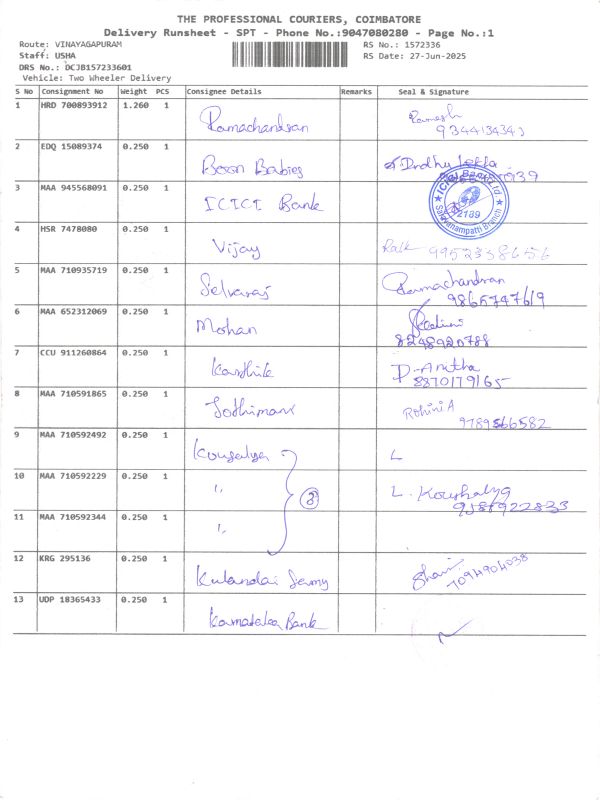 THE PROFESSIONAL COURIERS, COIMBATORE
Delivery Runsheet - SPT - Phone No.:9047080280 - Page No.:1
Route: VINAYAGAPURAM RS No.: 1572336
Staff: USHA RS Date: 27-Jun-2025
DRS No.: DCJB157233601
Vehicle: Two Wheeler Delivery
S No Consignment No Weight PCS Consignee Details Remarks Seal & Signature
1 HRD 700893912 1.260 1 Ramachandran Ramesh
2 EDQ 15089374 0.250 1 Boson Babies
3 MAA 945568091 0.250 1 ICICI Bank ICICI Bank Ltd 2189 Saravanampatti Branch
4 HSR 7478080 0.250 1 Vijay 9952358656
5 MAA 710935719 0.250 1 Selvaraj Ramachandran
9865747619
6 MAA 652312069 0.250 1 Mohan
8248920788
7 CCU 911260864 0.250 1 Karthik
8870179165
8 MAA 710591865 0.250 1 Jothimani Rohini A
9789566582
9 MAA 710592492 0.250 1 Kousalya L
10 MAA 710592229 0.250 1 " ③ L. Koushalya
11 MAA 710592344 0.250 1 "
12 KRG 295136 0.250 1 Kulandai Samy
7094904038
13 UDP 18365433 0.250 1 Bank